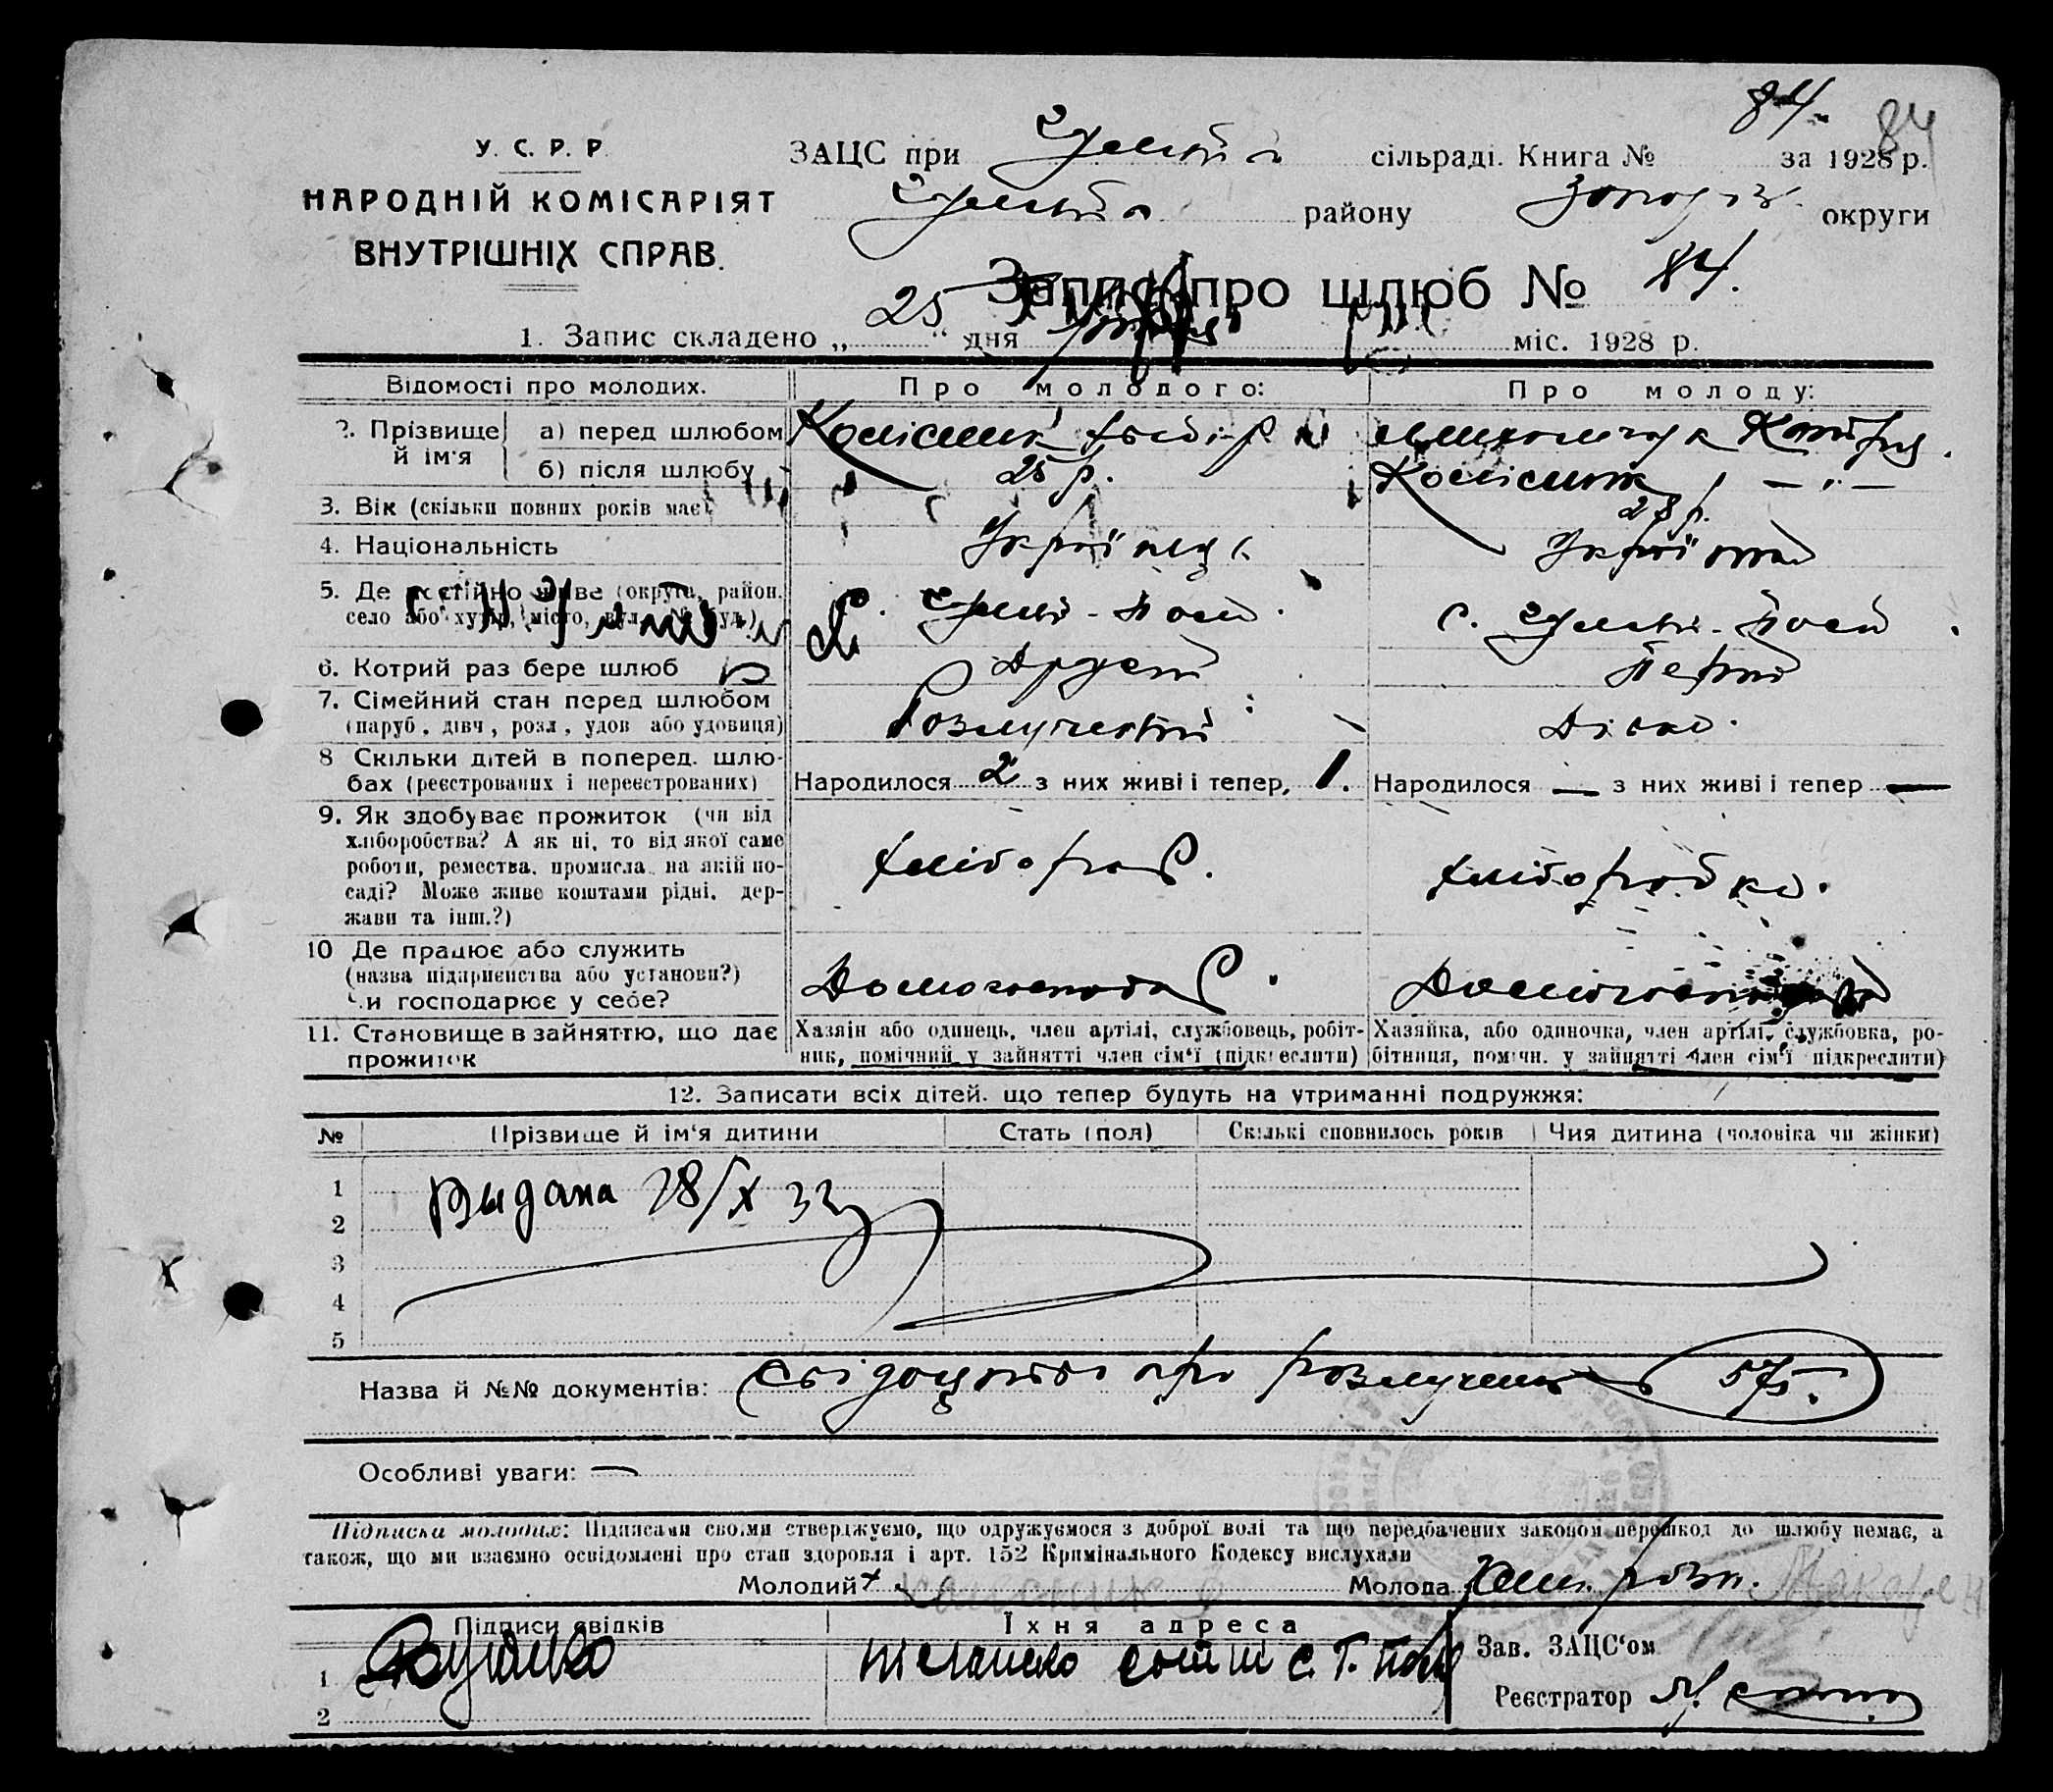 84. 84
У. С. Р. Р.
НАРОДНІЙ КОМІСАРІЯТ
ВНУТРІШНІХ СПРАВ.
ЗАЦС при сільраді. Книга № за 1928 р.
району округи
Запис про шлюб № 84.
1. Запис складено „ 25 “ дня міс. 1928 р.
Відомості про молодих. Про молодого: Про молоду:
2. Прізвище й ім'я
а) перед шлюбом
б) після шлюбу
Колісник
Колісник
3. Вік (скільки повних років має)
25 р. 28 р.
4. Національність
Українець Українка
5. Де постійно живе (округа, район,
село або хутір, місто, вул. № буд.)
с. Гуляй-Поле с. Гуляй-Поле
6. Котрий раз бере шлюб
Другий Перший
7. Сімейний стан перед шлюбом
(паруб., дівч., розл., удов. або удовиця)
Розлучений Дівка.
8 Скільки дітей в поперед. шлю-
бах (реєстрованих і нереєстрованих)
Народилося 2 з них живі і тепер, 1. Народилося — з них живі і тепер —
9. Як здобуває прожиток (чи від
хліборобства? А як ні, то від якої саме
роботи, ремества, промисла, на якій по-
саді? Може живе коштами рідні, дер-
жави та інш.?)
Хлібороб. Хліборобка.
10 Де працює або служить
(назва підприємства або установи?)
Чи господарює у себе?
Домогосподар.
11. Становище в зайняттю, що дає
прожиток
Хазяїн або одинець, член артілі, службовець, робіт-
ник, помічний у зайнятті член сім'ї (підкреслити)
Хазяйка, або одиночка, член артілі, службовка, ро-
бітниця, помічн. у зайнятті член сім'ї підкреслити)
12. Записати всіх дітей, що тепер будуть на утриманні подружжя:
№ Прізвище й ім'я дитини Стать (пол) Скількі сповнилось років Чия дитина (чоловіка чи жінки)
1
2
3
4
5
Выдана 28/X 32
Назва й №№ документів: Свідоцтво про розлучення 575.
Особливі уваги: —
Підписка молодих: Підписами своїми стверджуємо, що одружуємося з доброї волі та що передбачених законом перешкод до шлюбу немає, а
також, що ми взаємно освідомлені про стан здоровля і арт. 152 Кримінального Кодексу вислухали
Молодий Молода
Підписи свідків Їхня адреса
1
2
Зав. ЗАЦС'ом
Реєстратор